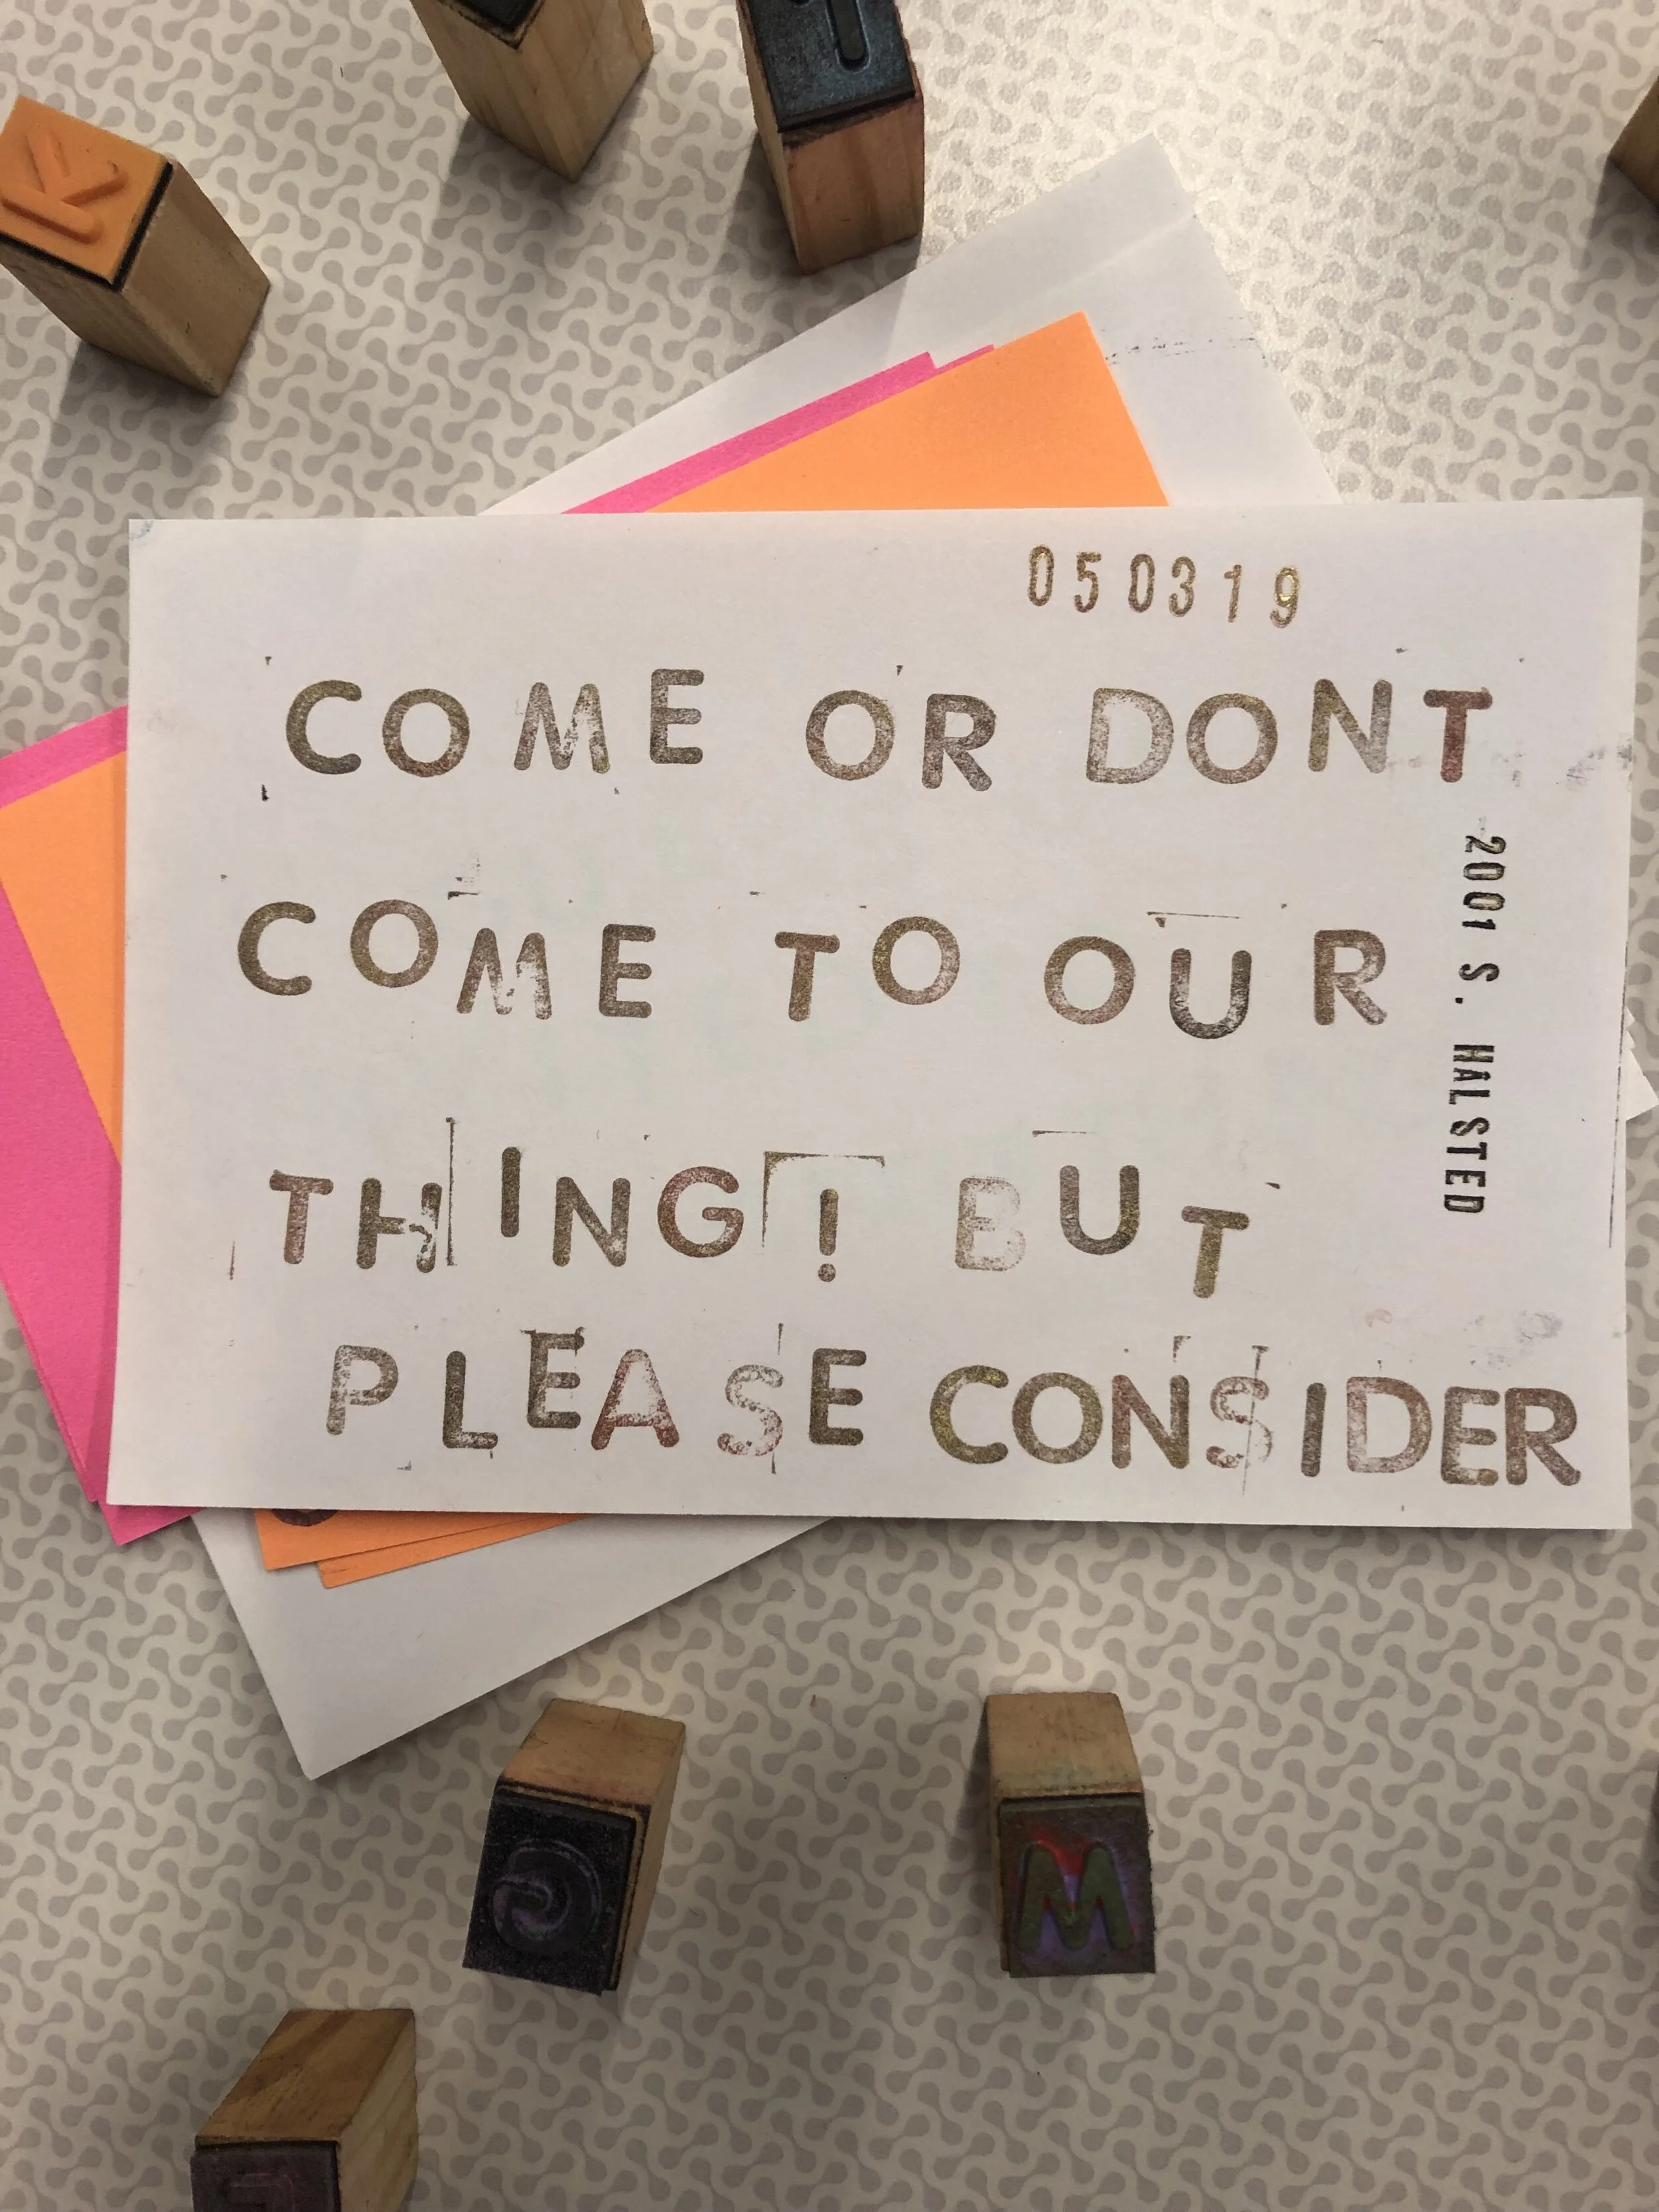 K
050319
COME OR DONT
COME TO OUR
THING! BUT
PLEASE CONSIDER
2001 S. HALSTED
M